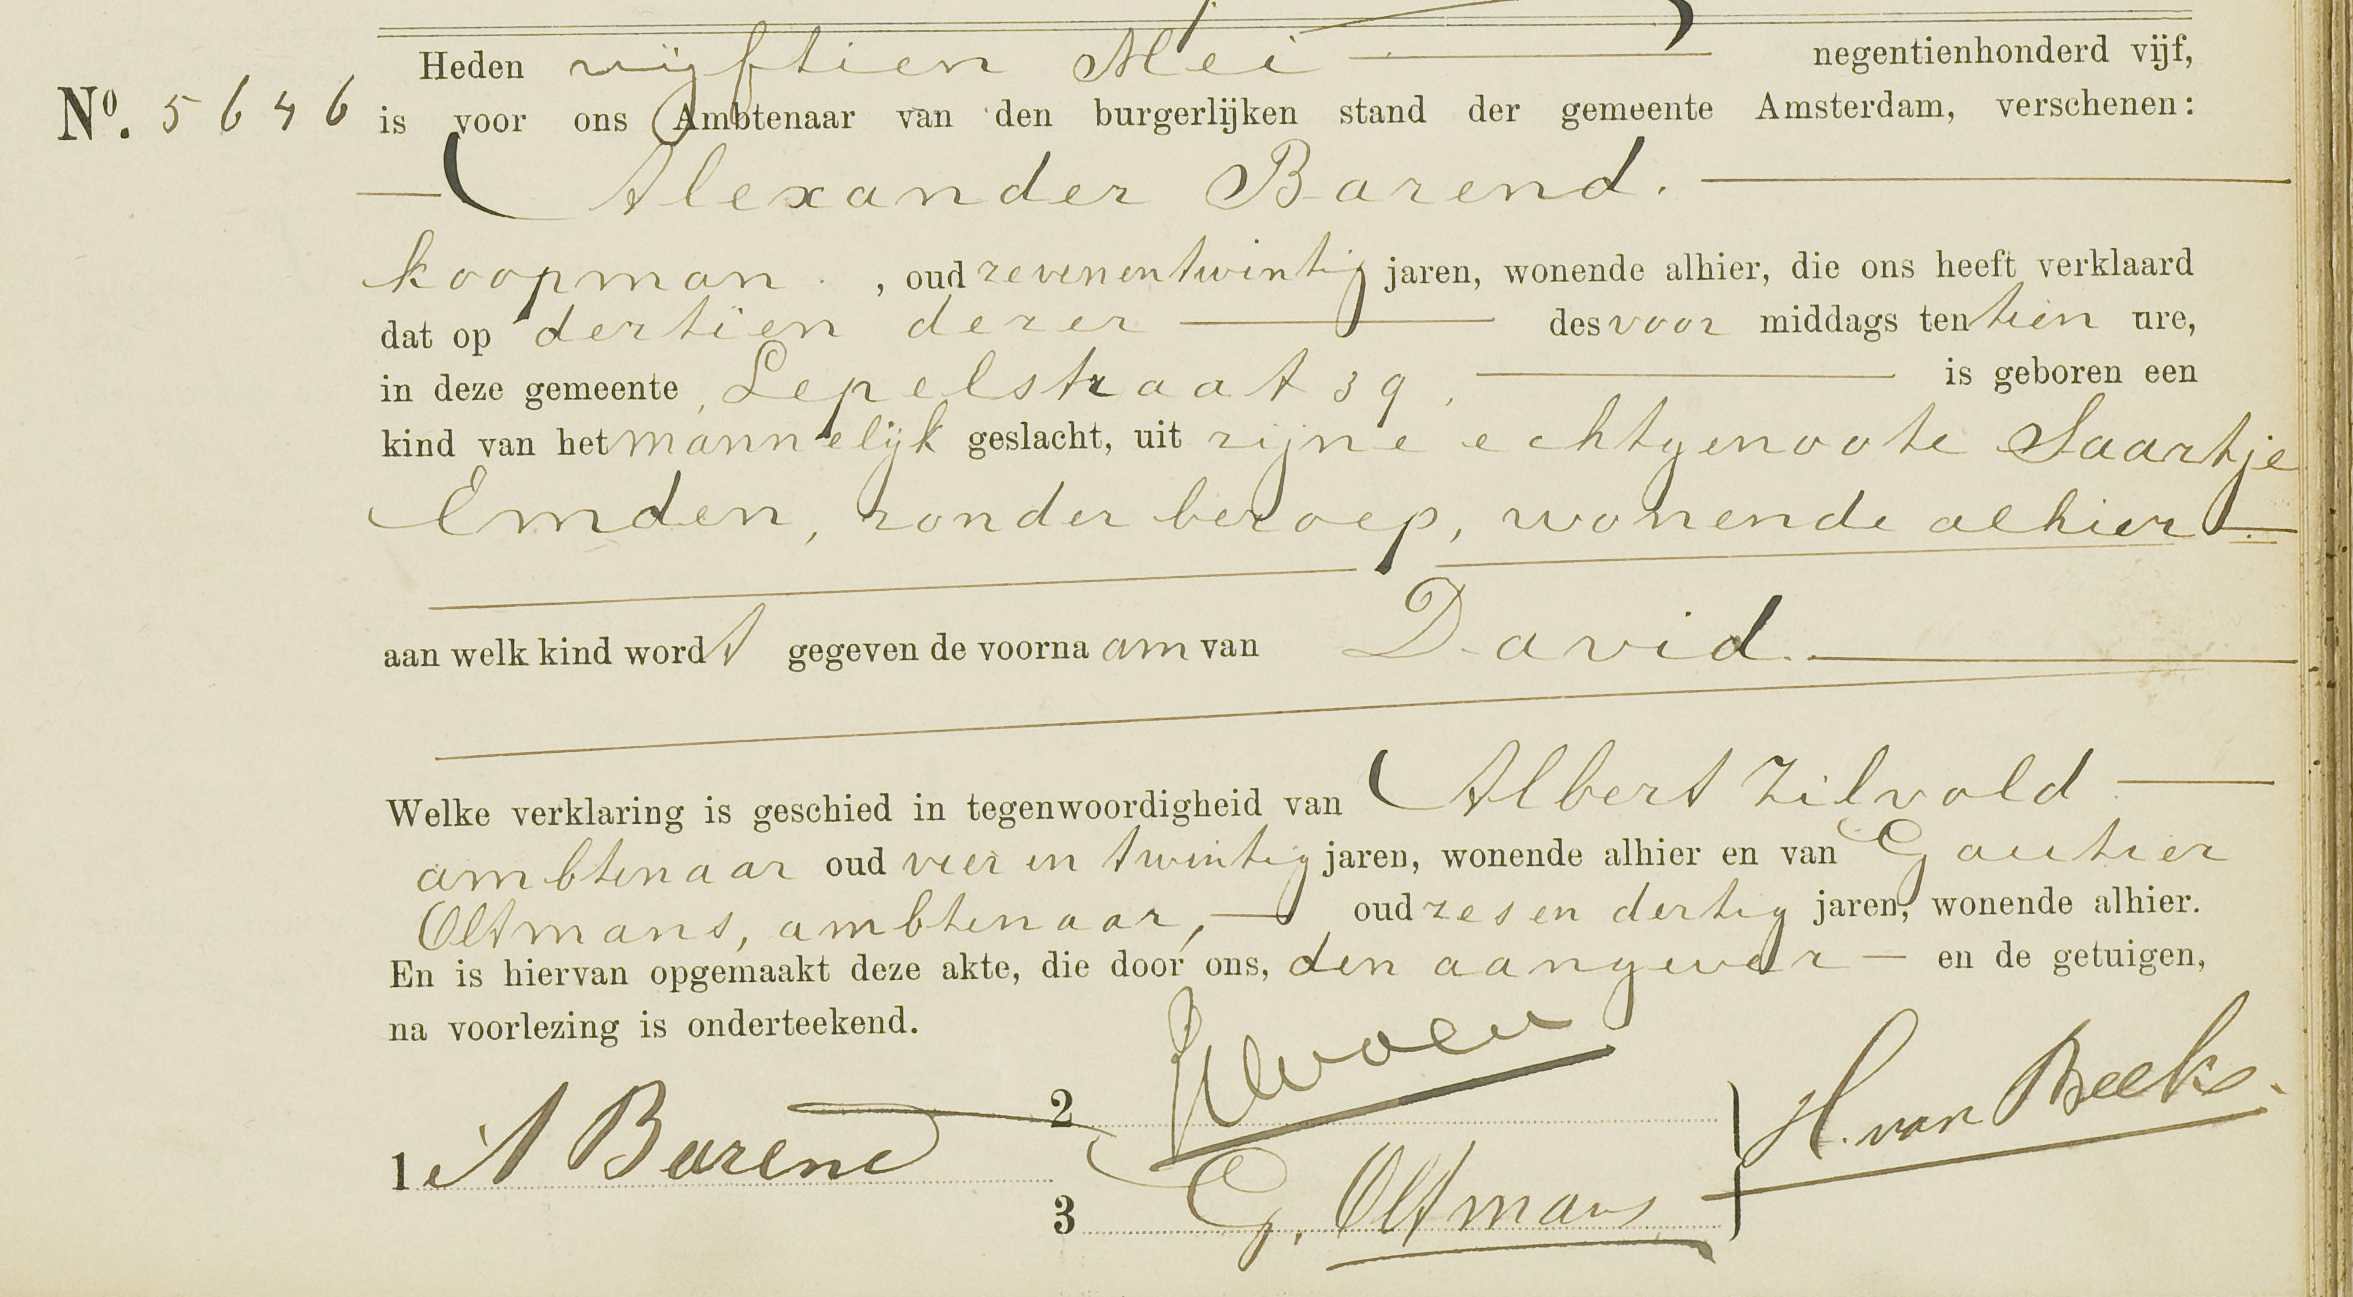 Heden vijftien Mei negentienhonderd vijf,
No. 5646 is voor ons Ambtenaar van den burgerlijken stand der gemeente Amsterdam, verschenen:
Alexander Barend.
koopman, oud zevenentwintig jaren, wonende alhier, die ons heeft verklaard
dat op dertien dezer des voor middags ten tien ure,
in deze gemeente, Lepelstraat 39, is geboren een
kind van het mannelijk geslacht, uit zijne echtgenoote Saartje
Emden, zonder beroep, wonende alhier
aan welk kind wordt gegeven de voornaam van David.
Welke verklaring is geschied in tegenwoordigheid van Albert Zilvold
ambtenaar oud vier en twintig jaren, wonende alhier en van Gautier
Oltmans, ambtenaar, oud zes en dertig jaren, wonende alhier.
En is hiervan opgemaakt deze akte, die door ons, den aangever en de getuigen,
na voorlezing is onderteekend.
1 A Barend
2
3 G. Oltmans
H. van Beek